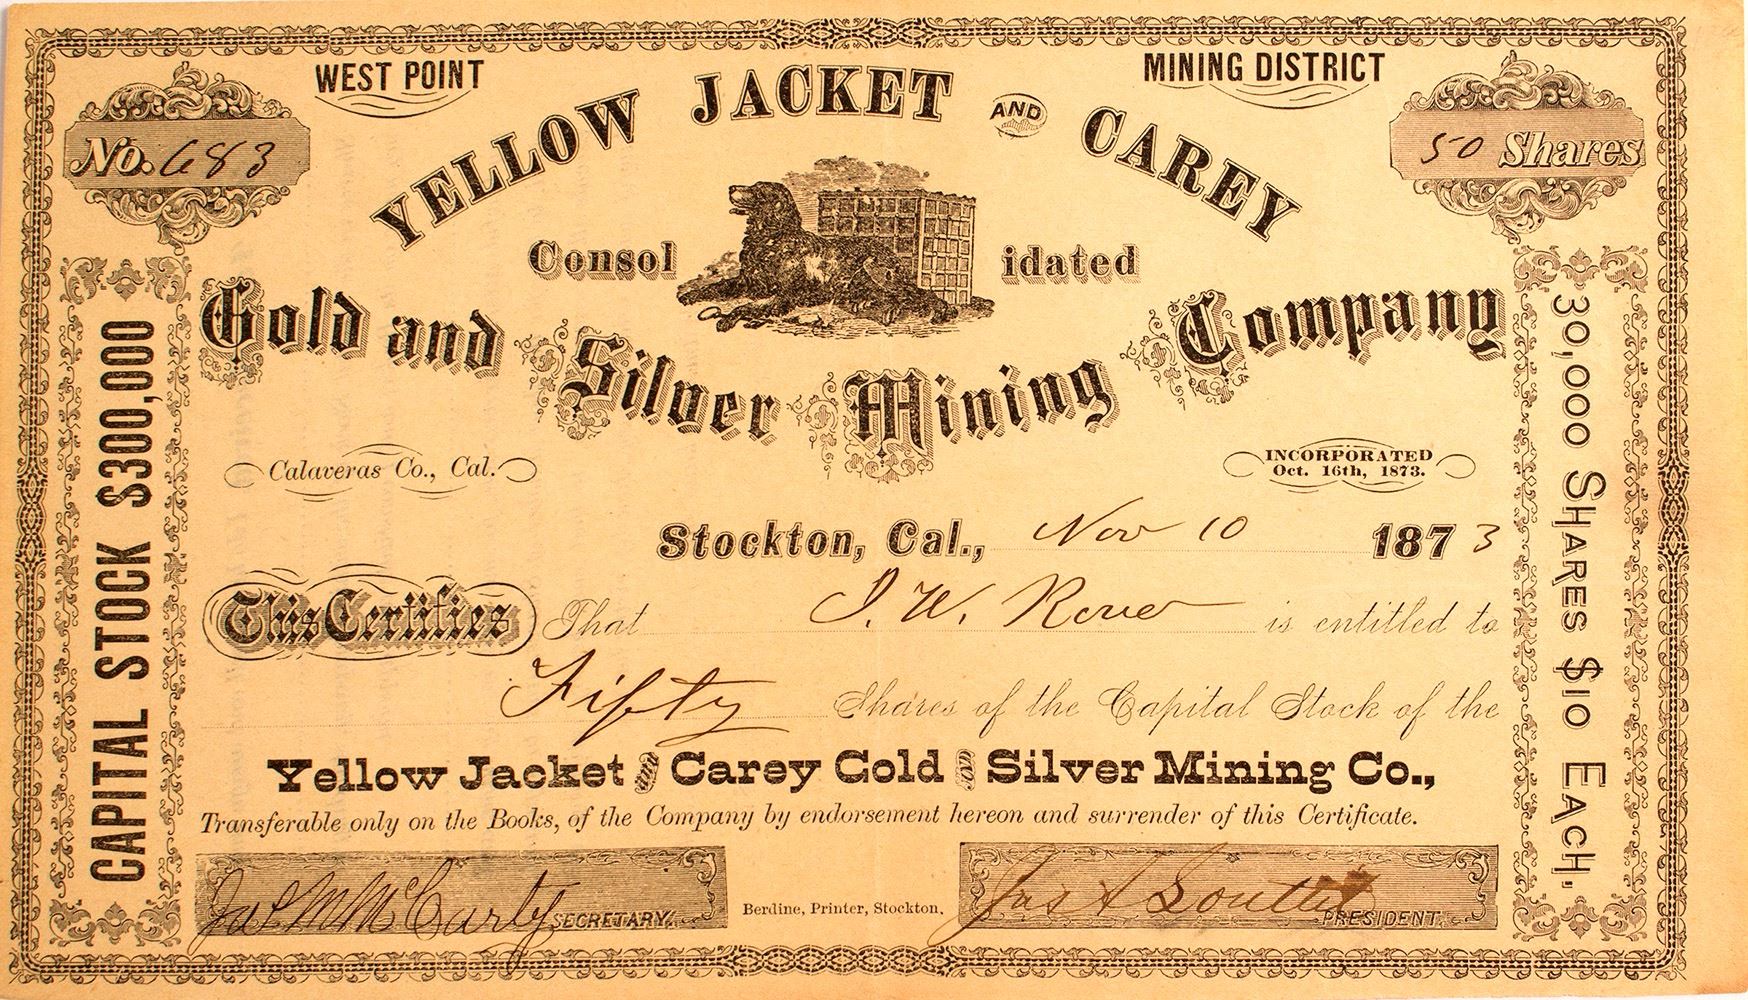 WEST POINT
MINING DISTRICT
No. 683
50 Shares
YELLOW JACKET AND CAREY
Consolidated
Gold and Silver Mining Company
Calaveras Co., Cal.
INCORPORATED
Oct. 16th, 1873.
CAPITAL STOCK $300,000
30,000 SHARES $10 EACH.
Stockton, Cal., Nov 10 1873
This Certifies That J. W. is entitled to
Fifty Shares of the Capital Stock of the
Yellow Jacket and Carey Gold and Silver Mining Co.,
Transferable only on the Books, of the Company by endorsement hereon and surrender of this Certificate.
McCarty SECRETARY.
Berdine, Printer, Stockton.
Jas PRESIDENT.